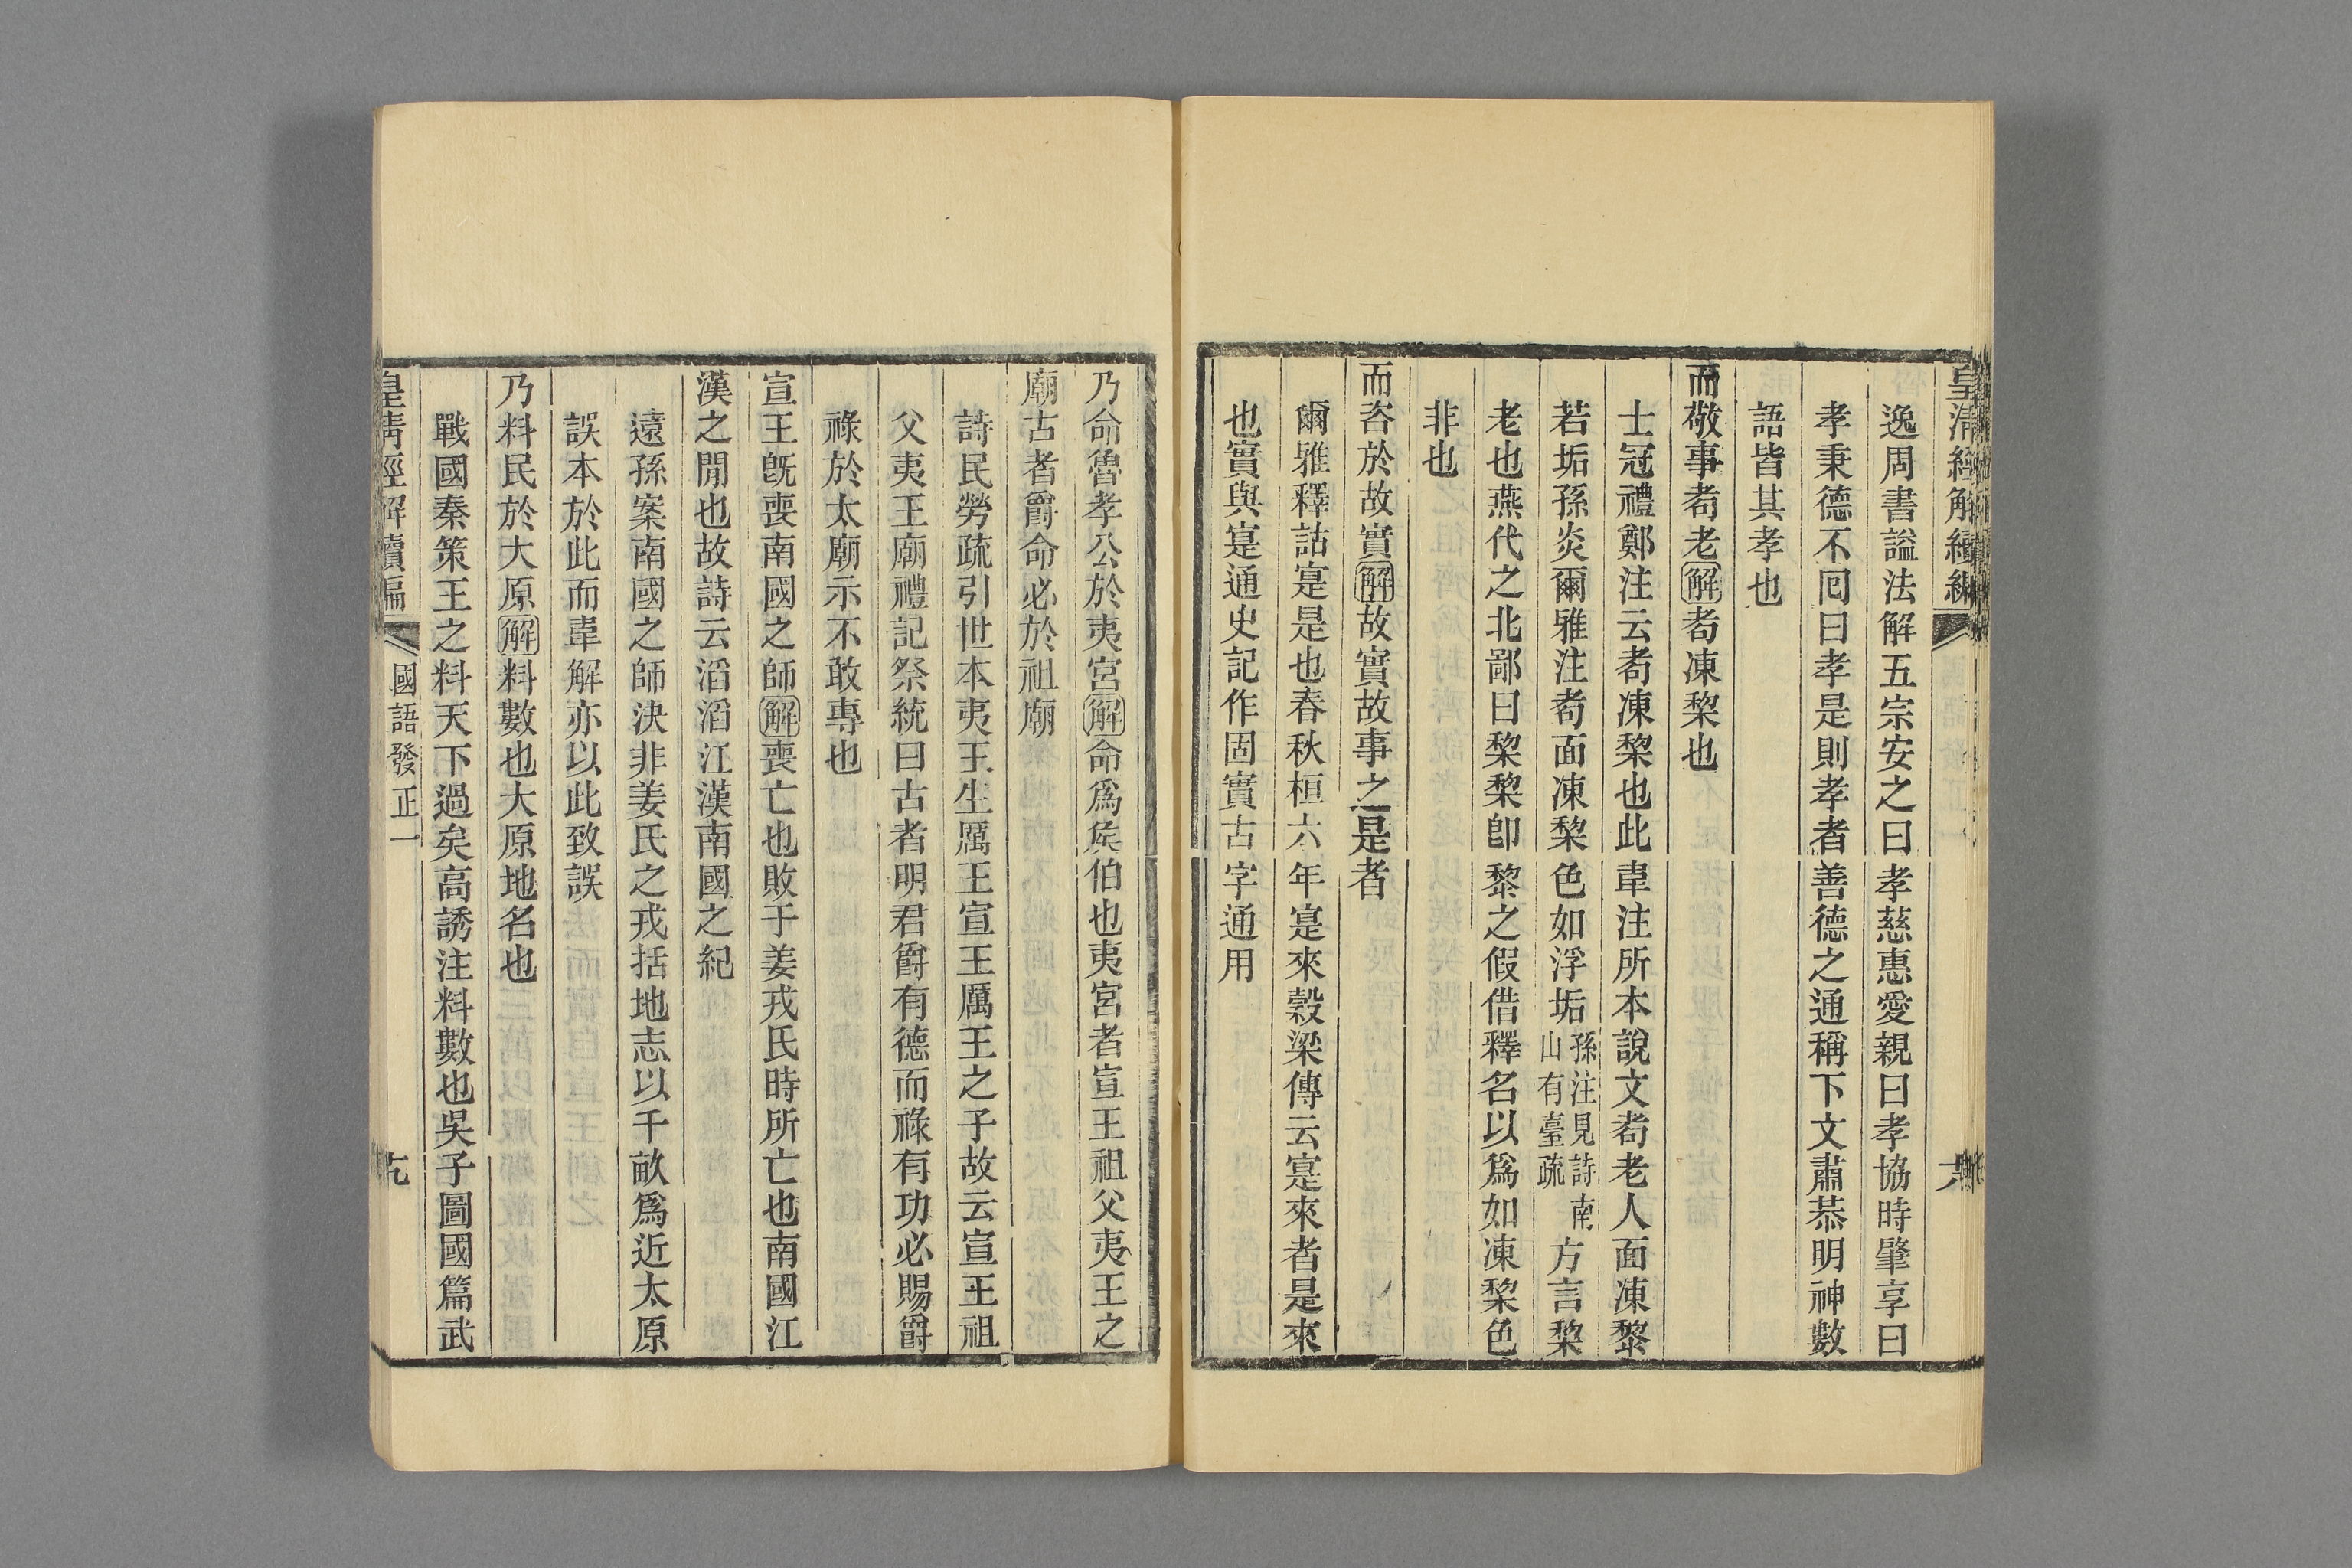 皇清經解續編
逸周書謚法解五宗安之曰孝慈惠愛親曰孝協時肇享曰
孝秉德不囘曰孝是則孝者善德之通稱下文肅恭明神數
語皆其孝也
而敬事耇老解耇凍棃也
士冠禮鄭注云耇凍棃也此韋注所本說文耇老人面凍黎
若垢孫炎爾雅注耇面凍棃色如浮垢孫注見詩南山有臺疏方言棃
老也燕代之北鄙曰棃棃卽黎之假借釋名以爲如凍棃色
非也
而咨於故實解故實故事之是者
爾雅釋詁寔是也春秋桓六年寔來穀梁傳云寔來者是來
也實與寔通史記作固實古字通用
乃命魯孝公於夷宮解命爲矦伯也夷宮者宣王祖父夷王之
廟古者爵命必於祖廟
詩民勞疏引世本夷王生厲王宣王厲王之子故云宣王祖
父夷王廟禮記祭統曰古者明君爵有德而祿有功必賜爵
祿於太廟示不敢專也
宣王旣喪南國之師解喪亡也敗于姜戎氏時所亡也南國江
漢之閒也故詩云滔滔江漢南國之紀
遠孫案南國之師決非姜氏之戎括地志以千畝爲近太原
誤本於此而韋解亦以此致誤
乃料民於大原解料數也大原地名也
戰國秦策王之料天下過矣高誘注料數也吳子圖國篇武
皇清經解續編
國語發正一
九